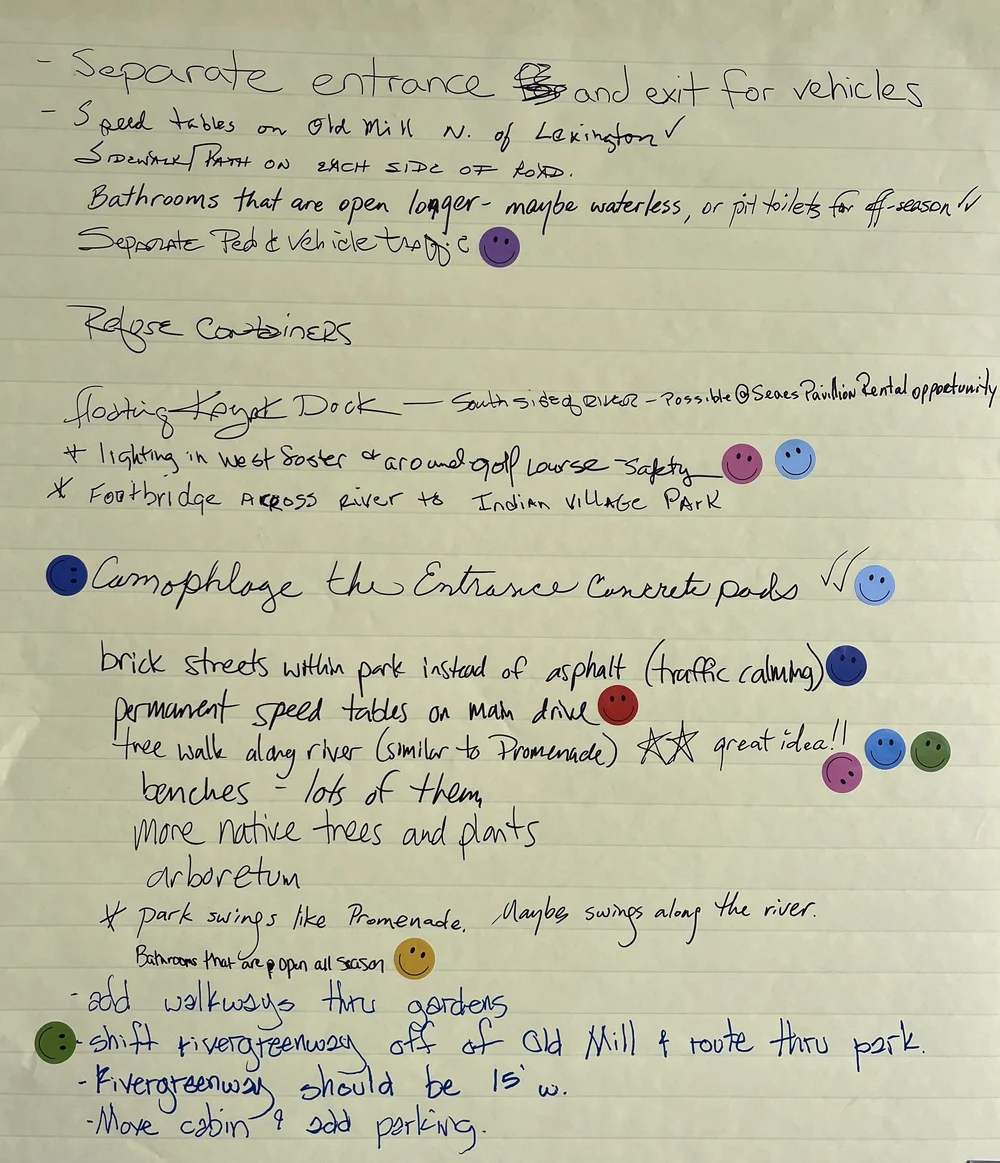 - Separate entrance and exit for vehicles
- Speed tables on Old Mill N. of Lexington ✓
SIDEWALK/PATH ON EACH SIDE OF ROAD.
Bathrooms that are open longer - maybe waterless, or pit toilets for off-season ✓✓
Separate Ped & Vehicle traffic
Refuse Containers
floating Kayak Dock — South side of RIVER - Possible @ Sears Pavillion Rental opportunity
* lighting in West Foster & around golf course - Safety
* Footbridge ACROSS River to Indian VILLAGE PARK
Camophlage the Entrance Concrete pads ✓✓
brick streets within park instead of asphalt (traffic calming)
permanent speed tables on main drive
tree walk along river (similar to Promenade) ☆☆ great idea!!
benches - lots of them,
more native trees and plants
arboretum
* park swings like Promenade. Maybe swings along the river.
Bathrooms that are open all season
- add walkways thru gardens
- shift rivergreenway off of Old Mill & route thru park.
- Rivergreenway should be 15' w.
- Move cabin & add parking.